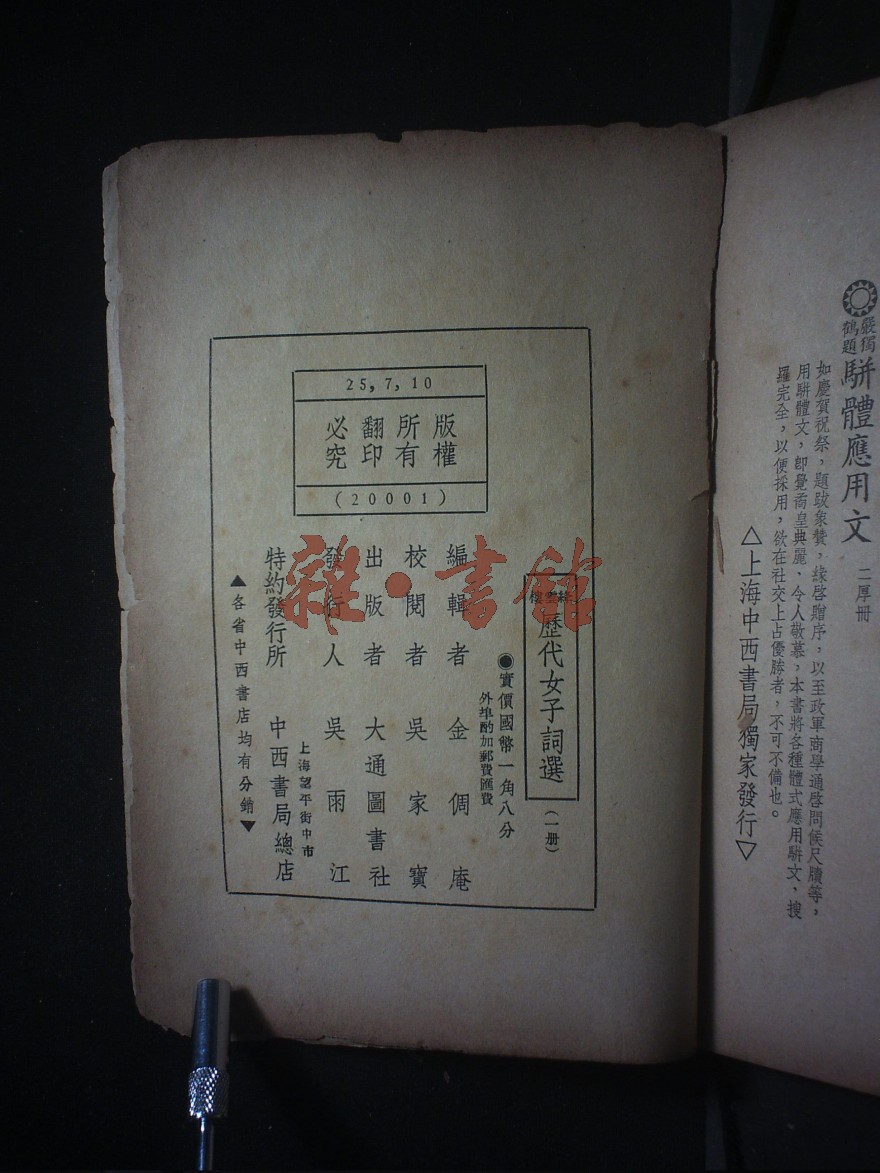 嚴獨
鶴題
駢體應用文 二厚冊
如慶賀祝祭，題跋象贊，緣啓贈序，以至政軍商學通啓問候尺牘等，
用駢體文，卽覺喬皇典麗、令人敬慕，本書將各種體式應用駢文，搜
羅完全，以便採用，欲在社交上占優勝者，不可不備也。
△上海中西書局獨家發行▽
25,7,10
版權
所有
翻印
必究
(20001)
歷代女子詞選 (一册)
●實價國幣一角八分
外埠酌加郵費匯費
編輯者 金倜庵
校閱者 吳家寶
出版者 大通圖書社
發行人 吳雨江
上海望平街中市
特約發行所 中西書局總店
▲各省中西書店均有分銷▼
雜·書館